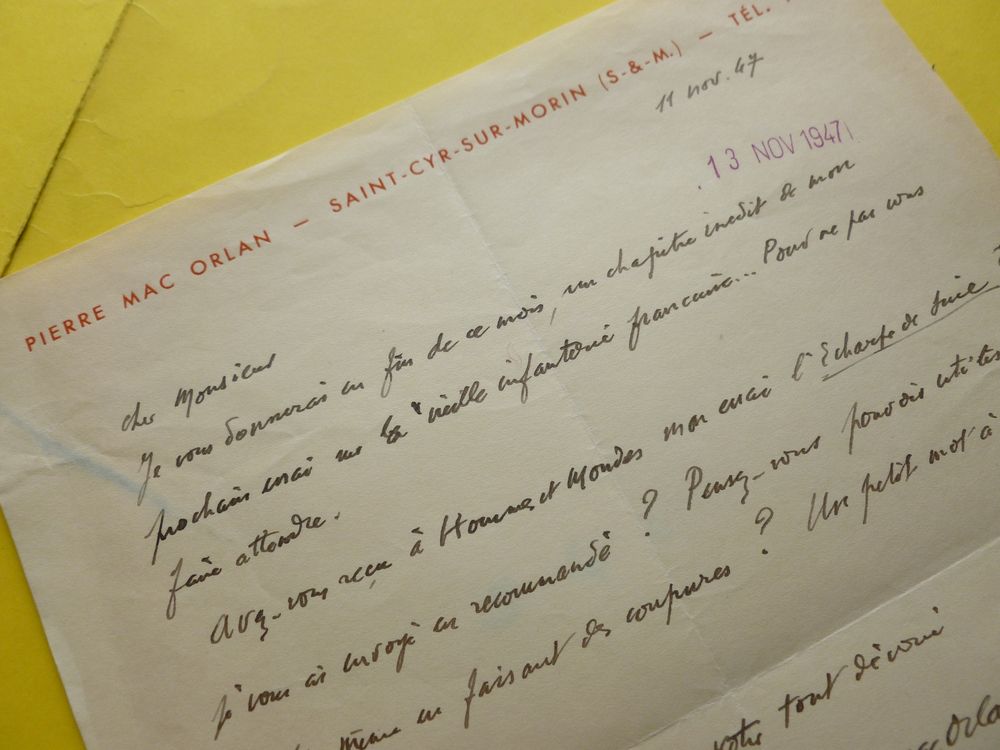 PIERRE MAC ORLAN — SAINT-CYR-SUR-MORIN (S-&-M.) — TÉL.
11 nov. 47
13 NOV 1947
cher Monsieur
Je vous donnerai en fin de ce mois, un chapitre inédit de mon
prochain essai sur la "vieille infanterie française... Pour ne pas vous
faire attendre.
Avez-vous reçu à Hommes et Mondes mon essai l'Echarpe de Suie
je vous ai envoyé en recommandé ? Pensez-vous pouvoir utiliser
même en faisant des coupures ? Un petit mot à
votre tout dévoué